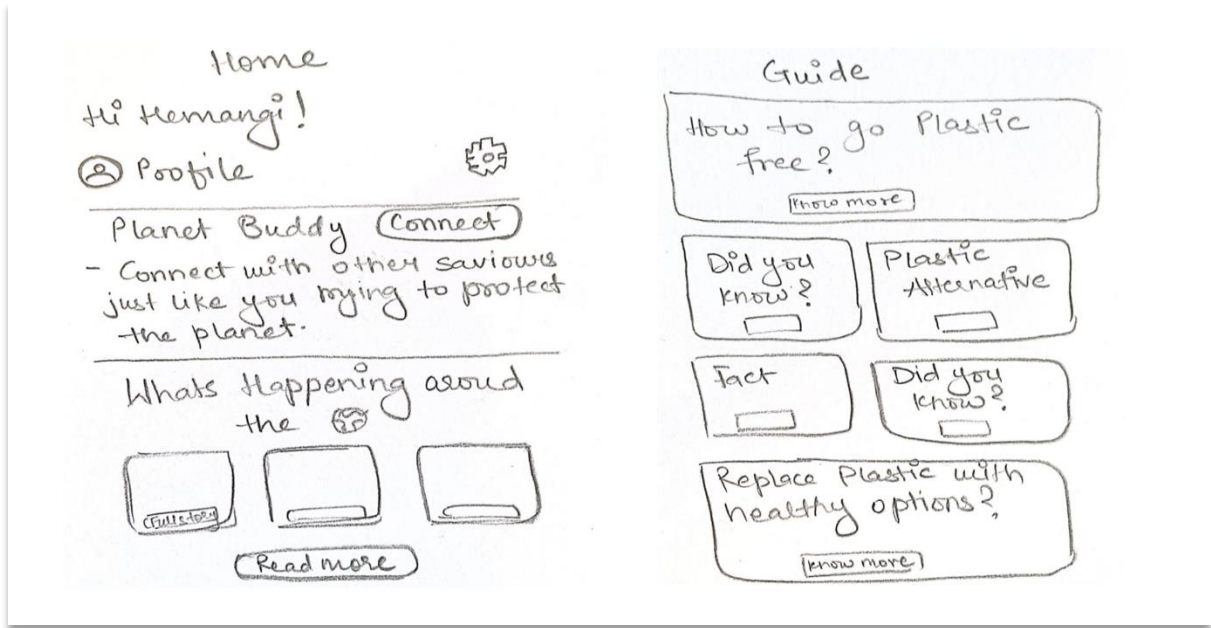 Home
Hi Hemangi!
Profile
Planet Buddy Connect
- Connect with other saviours
just like you trying to protect
the planet.
Whats Happening aroud
the
Full story
Read more
Guide
How to go Plastic
free?
Know more
Did you
know?
Plastic
Alternative
Fact
Did you
know?
Replace Plastic with
healthy options?
Know more